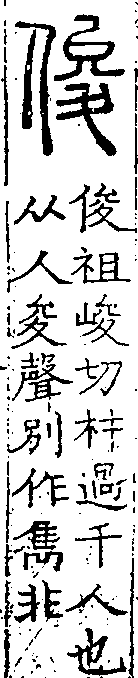 俊
俊祖峻切材過千人也
从人夋聲別作雋非